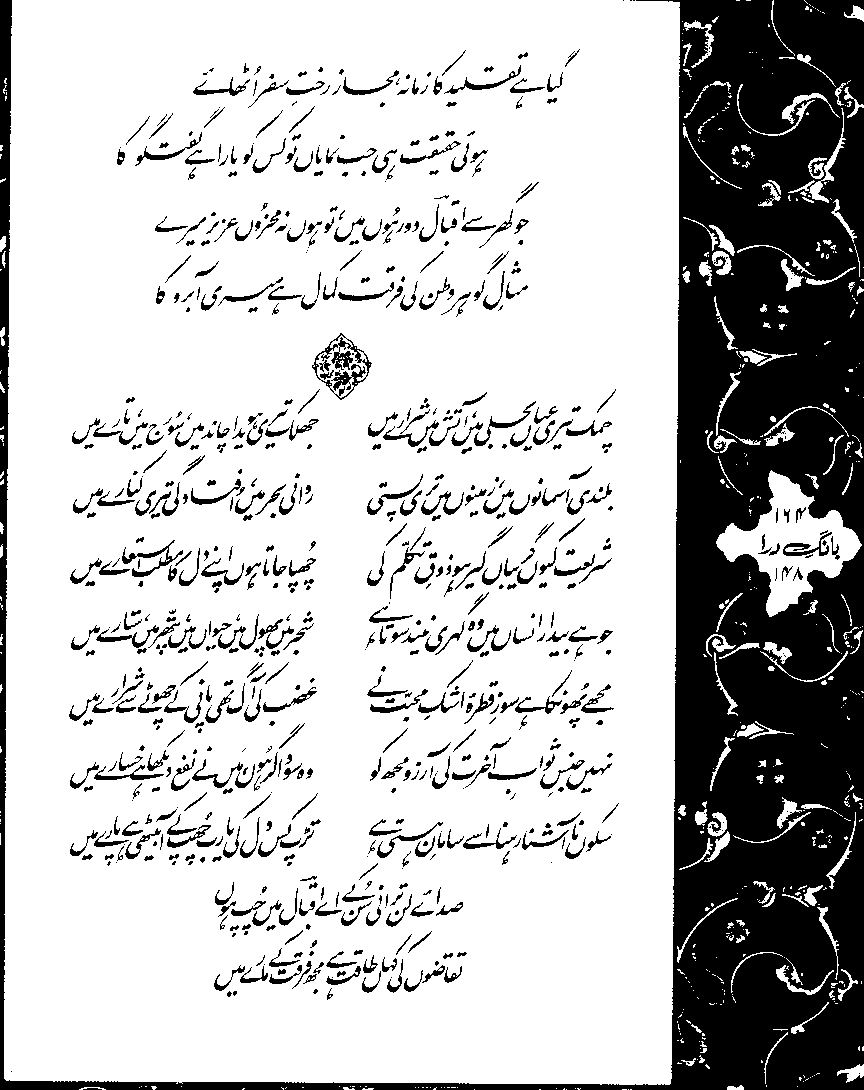 گیا ہے تقلید کا زمانہ، مجاز رختِ سفر اُٹھائے
ہوئی حقیقت ہی جب نمایاں تو کس کو یارا ہے گفتگو کا
جو گھر سے اقبالؔ دور ہُوں مَیں، تو ہوں نہ محزُوں عزیز میرے
مثالِ گوہر وطن کی فرقت کمال ہے میری آبرو کا
چمک تیری عیاں بجلی میں، آتش میں، شرارے میں جھلک تیری ہویدا چاند میں، سُورج میں، تارے میں
بلندی آسمانوں میں، زمینوں میں تری پستی روانی بحر میں، اُفتادگی تیری کنارے میں
شریعت کیوں گریباں گیر ہو ذوقِ تکلّم کی چھُپا جاتا ہوں اپنے دل کا مطلب استعارے میں
جو ہے بیدار انساں میں وہ گہری نیند سوتا ہے شجر میں، پھول میں، حیواں میں، پتھّر میں، ستارے میں
مجھے پھُونکا ہے سوزِ قطرۂ اشکِ محبّت نے غضب کی آگ تھی پانی کے چھوٹے سے شرارے میں
نہیں جنسِ ثوابِ آخرت کی آرزو مجھ کو وہ سوداگر ہُوں، مَیں نے نفع دیکھا ہے خسارے میں
سکوں ناآشنا رہنا اسے سامانِ ہستی ہے تڑپ کس دل کی یا رب چھُپ کے آ بیٹھی ہے پارے میں
صدائے لن ترانی سُن کے اے اقبالؔ میں چُپ ہوں
تقاضوں کی کہاں طاقت ہے مجھ فُرقت کے مارے میں
۱۶۴
بانگِ درا
۱۴۸